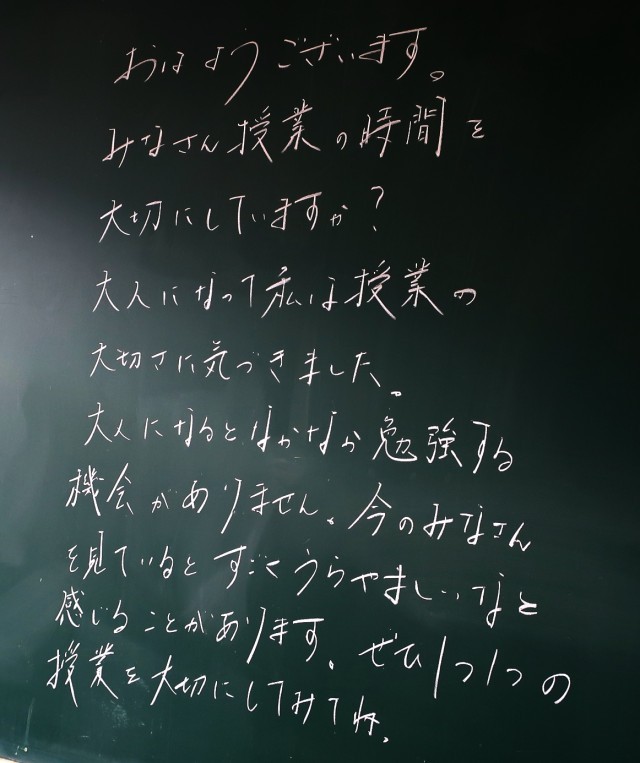 おはようございます。
みなさん授業の時間を
大切にしていますか?
大人になって私は授業の
大切さに気づきました。
大人になるとなかなか勉強する
機会がありません。今のみなさん
を見ているとすごくうらやましいなと
感じることがあります。ぜひ1つ1つの
授業を大切にしてみてね。